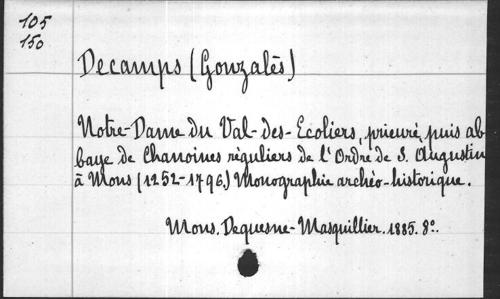 105
150
Decamps (Gonzalès)
Notre-Dame du Val-des-Ecoliers, prieuré, puis ab
baye de Chanoines réguliers de l'Ordre de S. Augustin
à Mons (1252-1796.) Monographie archéo-historique.
Mons. Dequesne-Masquillier. 1885. 8º.